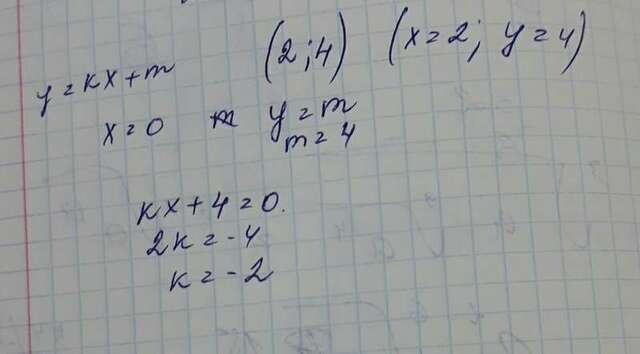 y = kx + m (2;4) (x=2; y=4)
x = 0 m y = m
m = 4
kx + 4 = 0.
2k = -4
k = -2